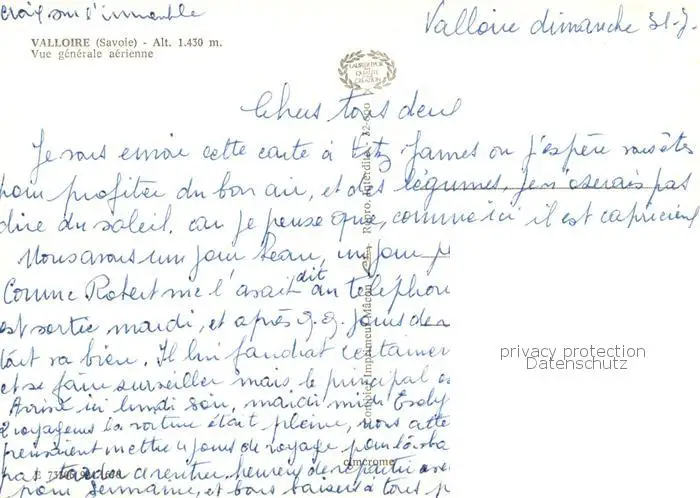 croix sur l'immeuble
Valloire dimanche 31-7-
VALLOIRE (Savoie) - Alt. 1.430 m.
Vue générale aérienne
LAURIER D'OR DE LA QUALITÉ DE CRÉATION
Chers tous deux
Je vous envoie cette carte à James ou j'espère vous êtes
pour profiter du bon air, et des légumes, je n'oserais pas
dire du soleil, car je pense que, comme ici il est capricieux
Nous avons un jour beau, un jour
Comme Robert me l'avait dit au téléphon
est sortie mardi, et après q.q. jours de
tout va bien. Il lui faudrait certainem
et se faire surveiller mais le principal es
Arrivé ici lundi soir, mardi midi
voyageurs la voiture était pleine, nous
pensaient mettre 4 jours de voyage pour
à rentrer heureux de
pour Germaine, et bons baisers à tous
Combier Imprimeur Mâcon
Repro. interdite
cimcrome
privacy protection
Datenschutz